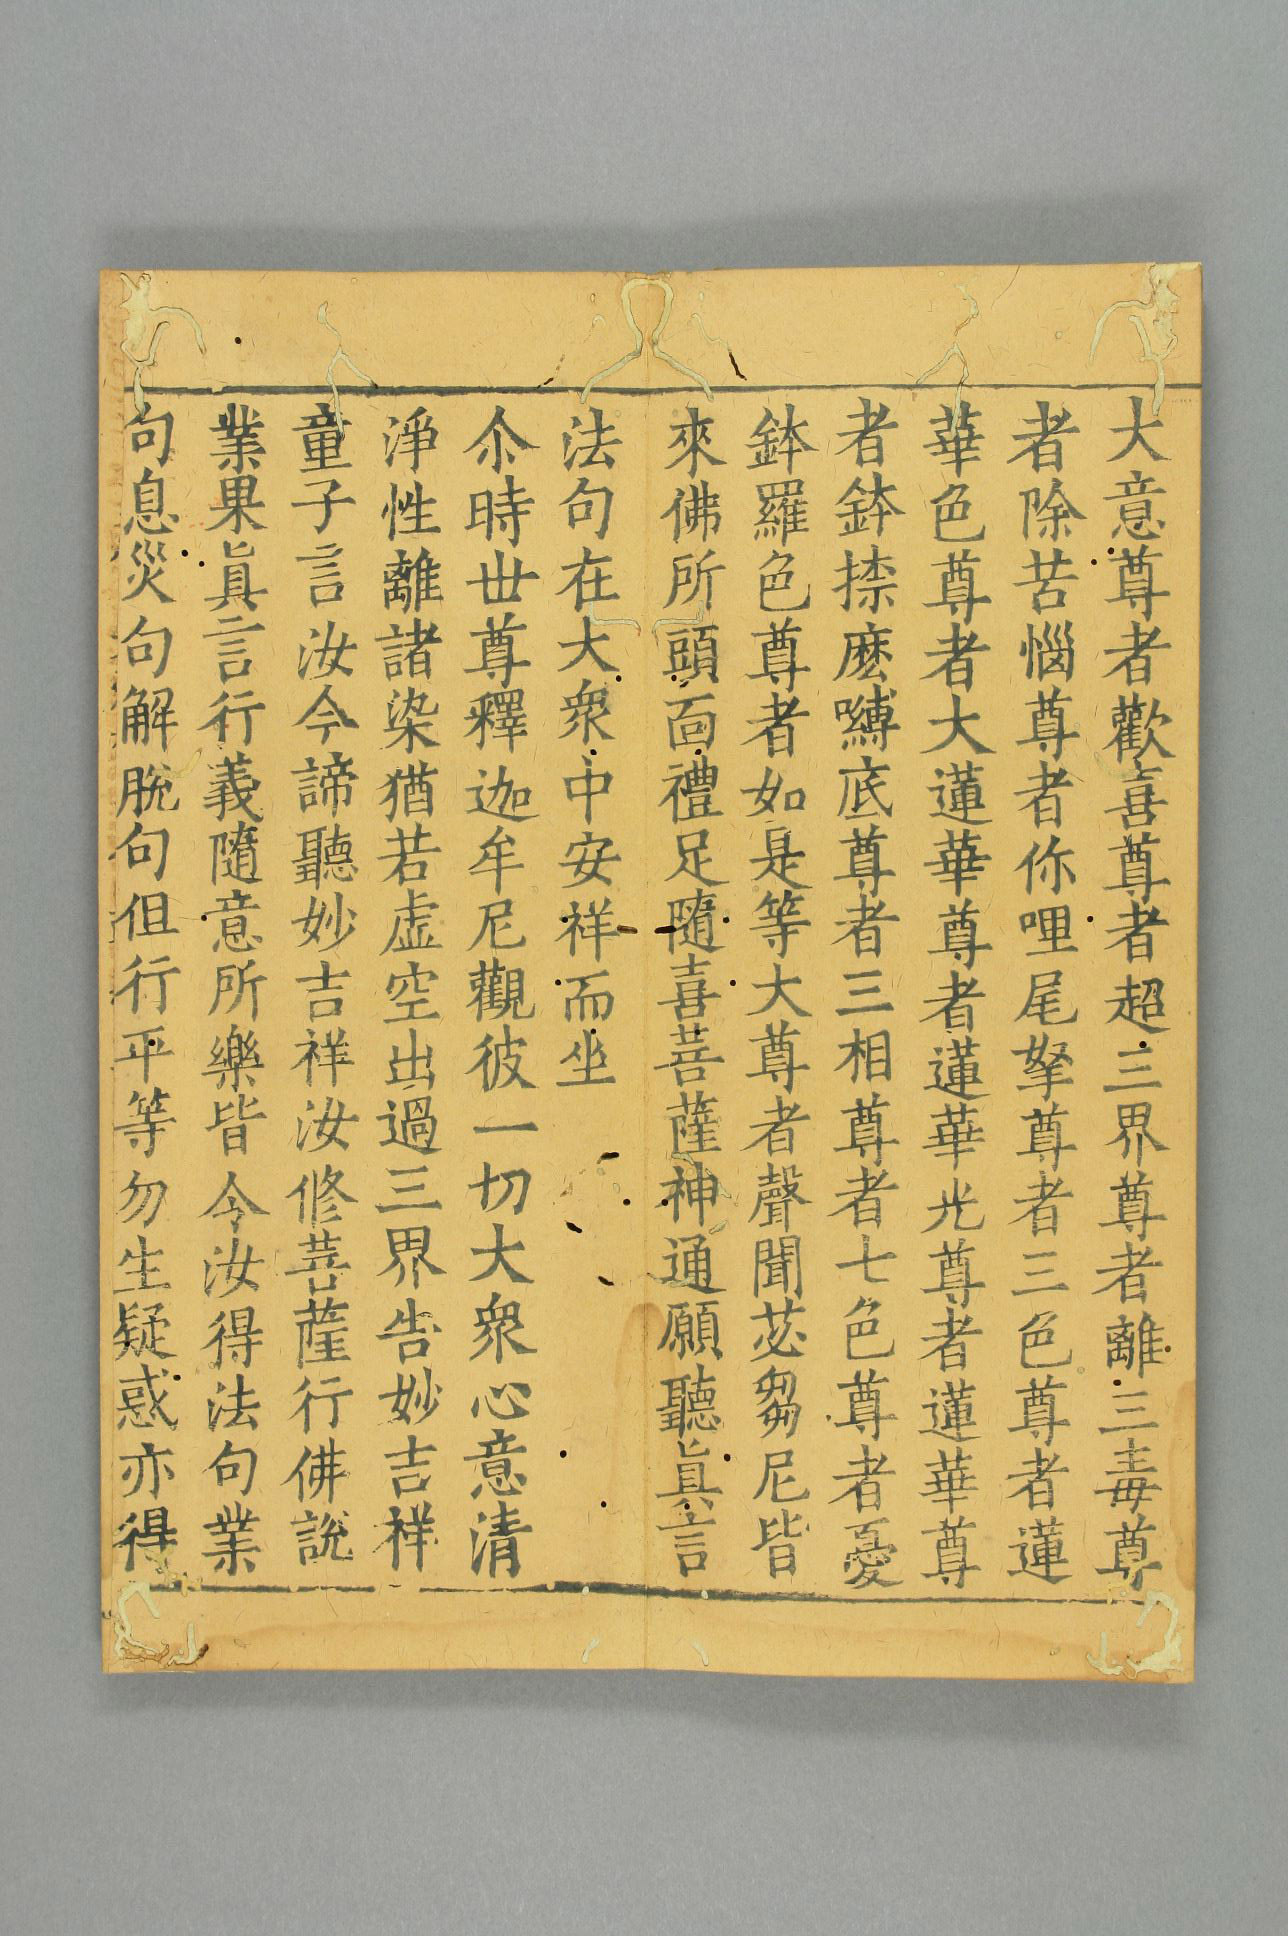 大意尊者歡喜尊者超三界尊者離三毒尊
者除苦惱尊者你哩尾拏尊者三色尊者蓮
華色尊者大蓮華尊者蓮華光尊者蓮華尊
者鉢捺麽嚩底尊者三相尊者七色尊者憂
鉢羅色尊者如是等大尊者聲聞苾芻尼皆
來佛所頭面禮足隨喜菩薩神通願聽眞言
法句在大衆中安祥而坐
尒時世尊釋迦牟尼觀彼一切大衆心意清
淨性離諸染猶若虛空出過三界告妙吉祥
童子言汝今諦聽妙吉祥汝修菩薩行佛說
業果眞言行義隨意所樂皆令汝得法句業
句息災句解脫句伹行平等勿生疑惑亦得